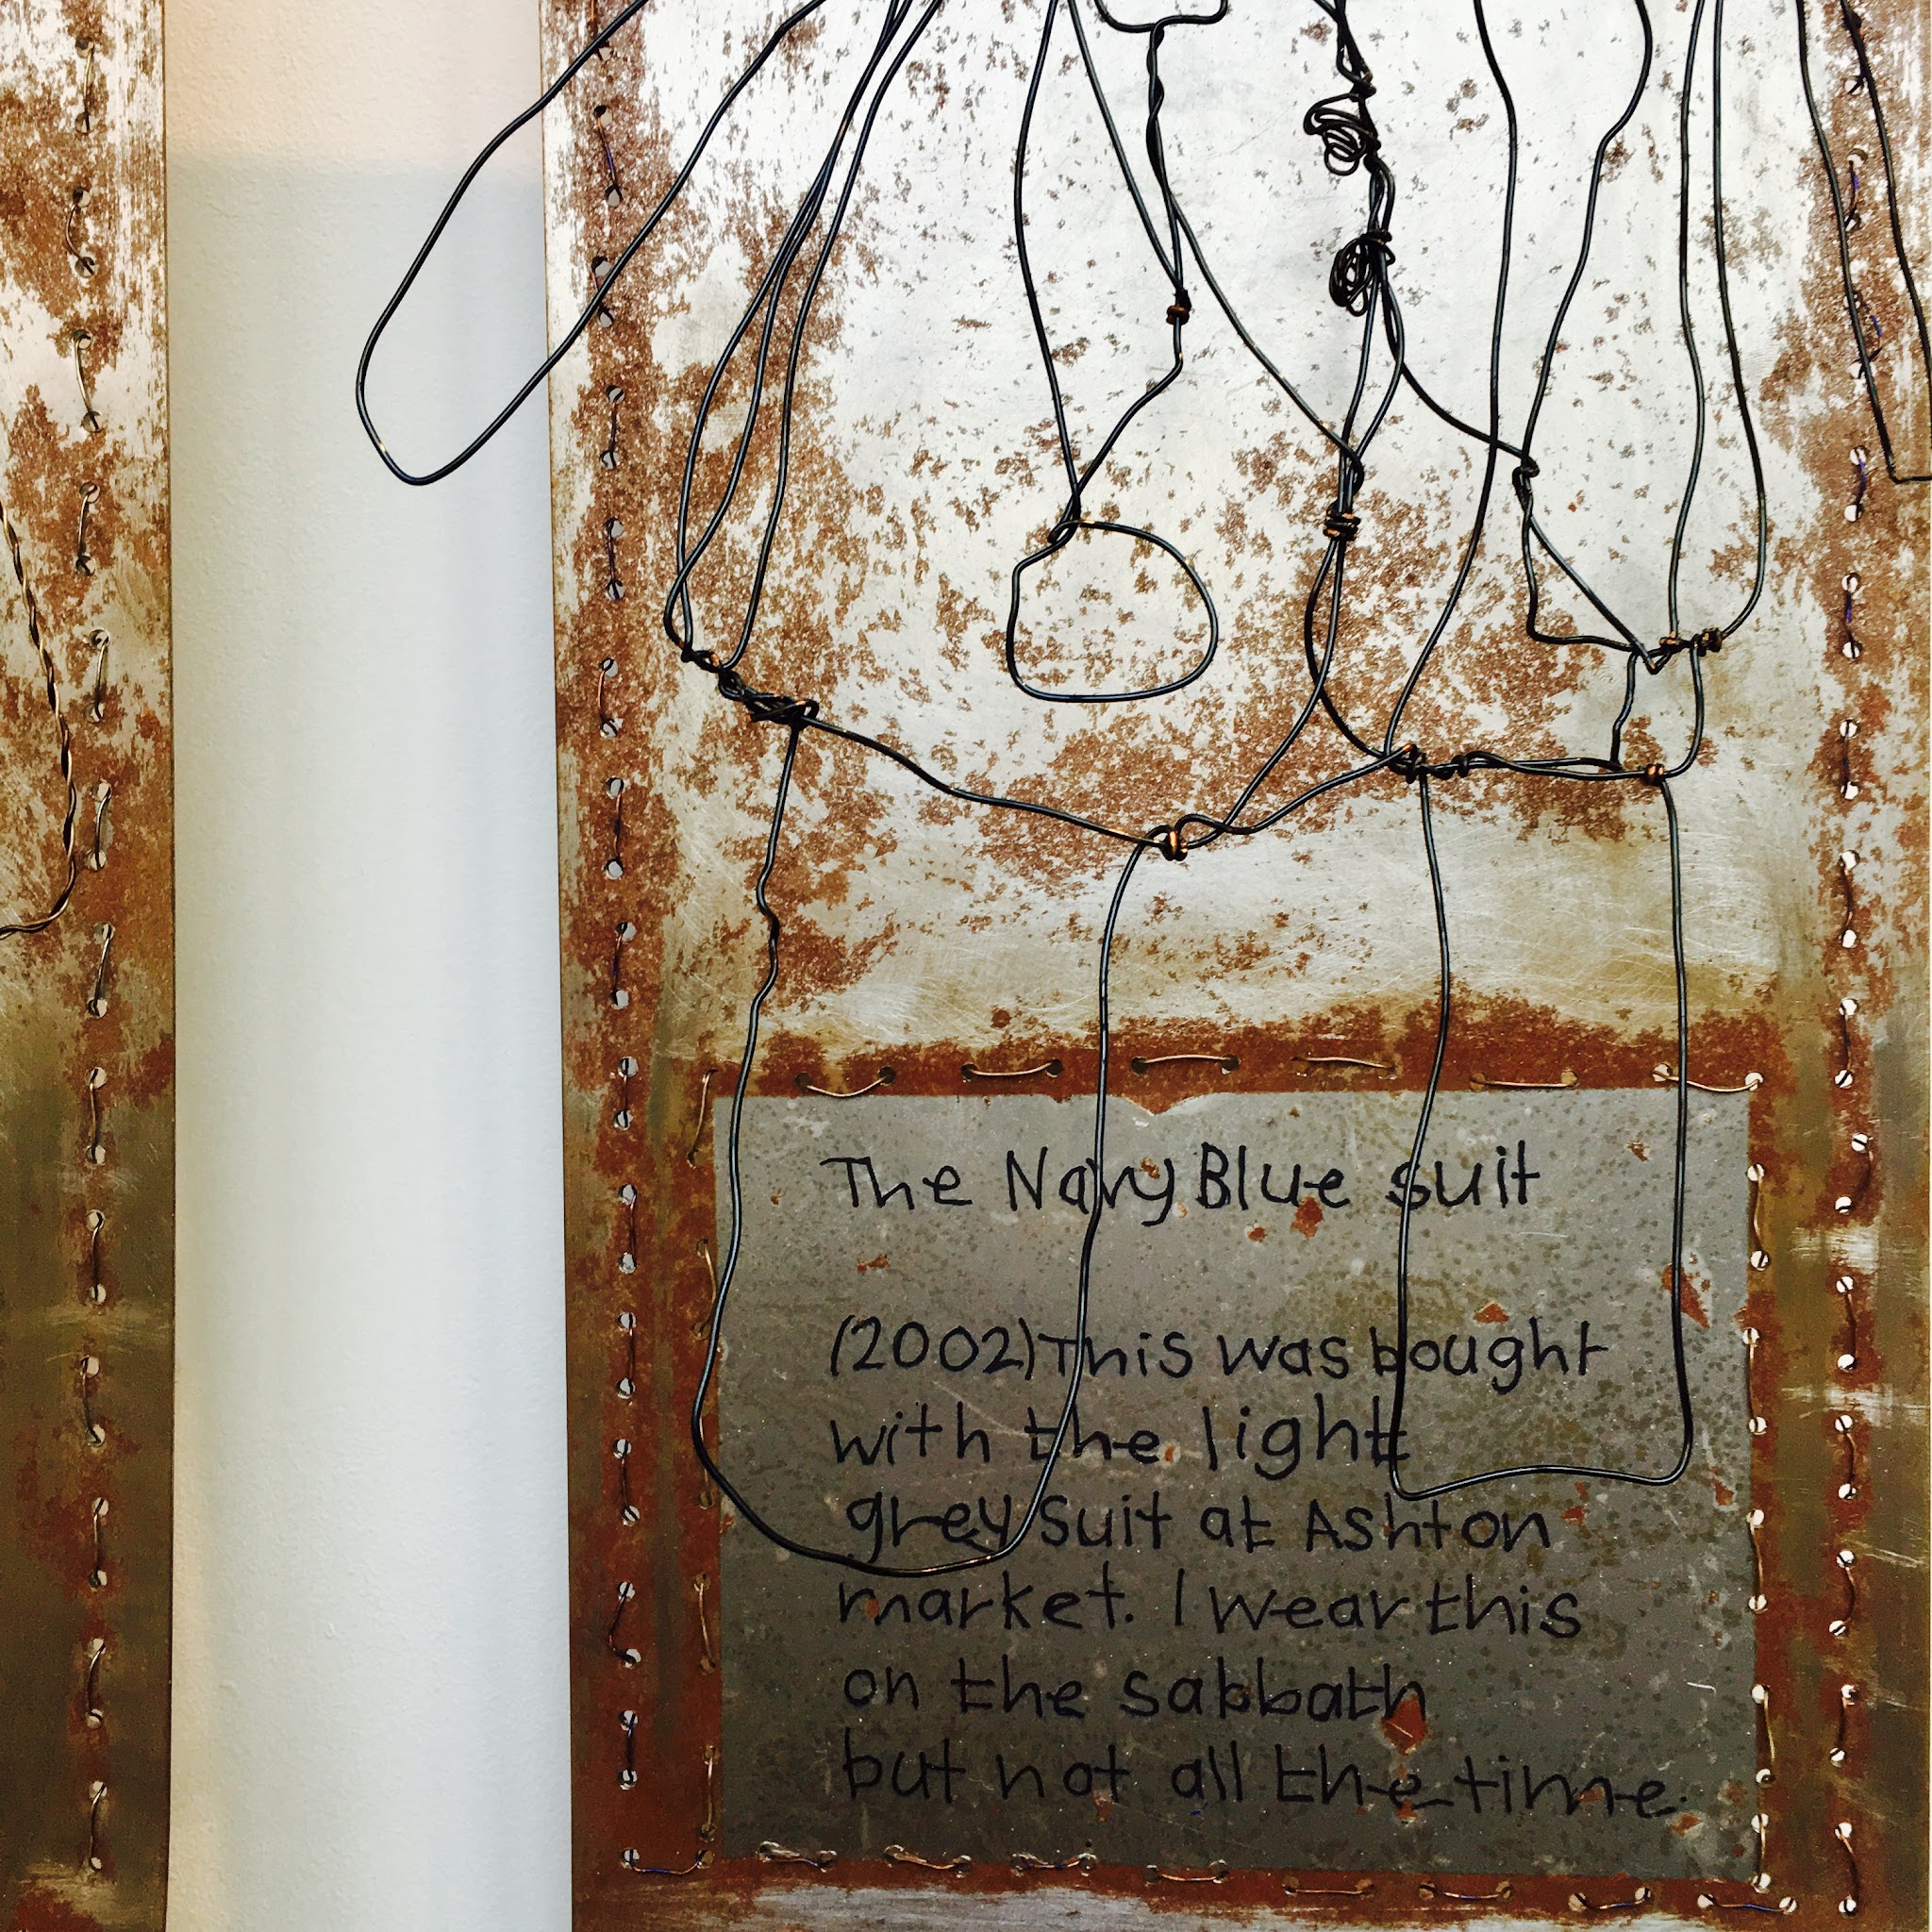 The Navy Blue suit
(2002)This was bought
with the light
grey suit at Ashton
market. I wear this
on the sabbath
but not all the time.